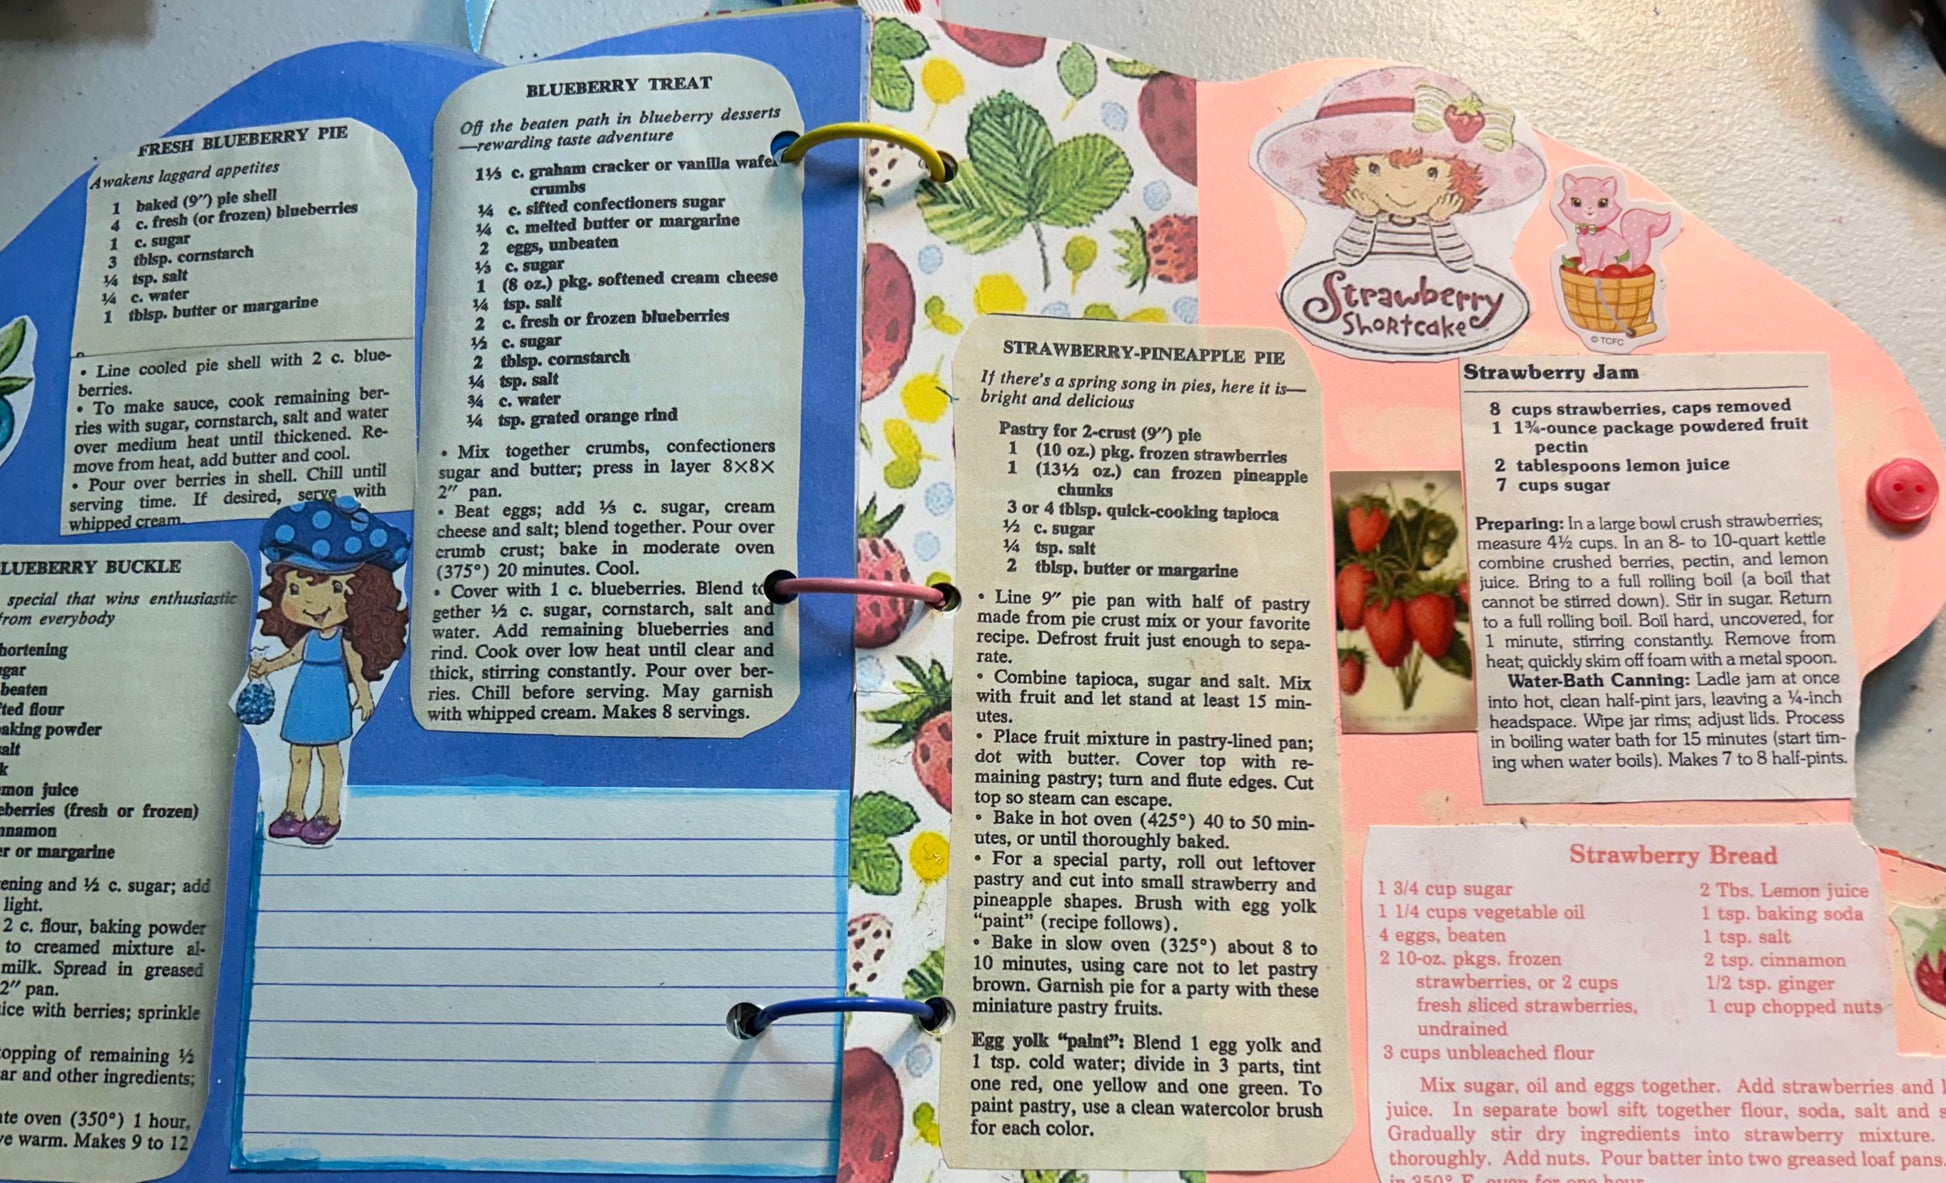 FRESH BLUEBERRY PIE
Awakens laggard appetites
1 baked (9") pie shell
4 c. fresh (or frozen) blueberries
1 c. sugar
3 tblsp. cornstarch
¼ tsp. salt
¼ c. water
1 tblsp. butter or margarine
• Line cooled pie shell with 2 c. blue-
berries.
• To make sauce, cook remaining ber-
ries with sugar, cornstarch, salt and water
over medium heat until thickened. Re-
move from heat, add butter and cool.
• Pour over berries in shell. Chill until
serving time. If desired, serve with
whipped cream.
LUEBERRY BUCKLE
special that wins enthusiastic
from everybody
hortening
gar
beaten
ted flour
aking powder
alt
k
mon juice
eberries (fresh or frozen)
nnamon
er or margarine
ening and ½ c. sugar; add
light.
2 c. flour, baking powder
to creamed mixture al-
milk. Spread in greased
2" pan.
ice with berries; sprinkle
opping of remaining ½
ar and other ingredients;
ate oven (350°) 1 hour,
ve warm. Makes 9 to 12
BLUEBERRY TREAT
Off the beaten path in blueberry desserts
—rewarding taste adventure
1⅓ c. graham cracker or vanilla wafer
crumbs
¼ c. sifted confectioners sugar
¼ c. melted butter or margarine
2 eggs, unbeaten
⅓ c. sugar
1 (8 oz.) pkg. softened cream cheese
¼ tsp. salt
2 c. fresh or frozen blueberries
½ c. sugar
2 tblsp. cornstarch
¼ tsp. salt
¾ c. water
¼ tsp. grated orange rind
• Mix together crumbs, confectioners
sugar and butter; press in layer 8×8×
2" pan.
• Beat eggs; add ⅓ c. sugar, cream
cheese and salt; blend together. Pour over
crumb crust; bake in moderate oven
(375°) 20 minutes. Cool.
• Cover with 1 c. blueberries. Blend to
gether ½ c. sugar, cornstarch, salt and
water. Add remaining blueberries and
rind. Cook over low heat until clear and
thick, stirring constantly. Pour over ber-
ries. Chill before serving. May garnish
with whipped cream. Makes 8 servings.
STRAWBERRY-PINEAPPLE PIE
If there's a spring song in pies, here it is—
bright and delicious
Pastry for 2-crust (9") pie
1 (10 oz.) pkg. frozen strawberries
1 (13½ oz.) can frozen pineapple
chunks
3 or 4 tblsp. quick-cooking tapioca
½ c. sugar
¼ tsp. salt
2 tblsp. butter or margarine
• Line 9" pie pan with half of pastry
made from pie crust mix or your favorite
recipe. Defrost fruit just enough to sepa-
rate.
• Combine tapioca, sugar and salt. Mix
with fruit and let stand at least 15 min-
utes.
• Place fruit mixture in pastry-lined pan;
dot with butter. Cover top with re-
maining pastry; turn and flute edges. Cut
top so steam can escape.
• Bake in hot oven (425°) 40 to 50 min-
utes, or until thoroughly baked.
• For a special party, roll out leftover
pastry and cut into small strawberry and
pineapple shapes. Brush with egg yolk
"paint" (recipe follows).
• Bake in slow oven (325°) about 8 to
10 minutes, using care not to let pastry
brown. Garnish pie for a party with these
miniature pastry fruits.
Egg yolk "paint": Blend 1 egg yolk and
1 tsp. cold water; divide in 3 parts, tint
one red, one yellow and one green. To
paint pastry, use a clean watercolor brush
for each color.
Strawberry
Shortcake
© TCFC
Strawberry Jam
8 cups strawberries, caps removed
1 1¾-ounce package powdered fruit
pectin
2 tablespoons lemon juice
7 cups sugar
Preparing: In a large bowl crush strawberries;
measure 4½ cups. In an 8- to 10-quart kettle
combine crushed berries, pectin, and lemon
juice. Bring to a full rolling boil (a boil that
cannot be stirred down). Stir in sugar. Return
to a full rolling boil. Boil hard, uncovered, for
1 minute, stirring constantly. Remove from
heat; quickly skim off foam with a metal spoon.
Water-Bath Canning: Ladle jam at once
into hot, clean half-pint jars, leaving a ¼-inch
headspace. Wipe jar rims; adjust lids. Process
in boiling water bath for 15 minutes (start tim-
ing when water boils). Makes 7 to 8 half-pints.
Strawberry Bread
1 3/4 cup sugar
1 1/4 cups vegetable oil
4 eggs, beaten
2 10-oz. pkgs. frozen
strawberries, or 2 cups
fresh sliced strawberries,
undrained
3 cups unbleached flour
2 Tbs. Lemon juice
1 tsp. baking soda
1 tsp. salt
2 tsp. cinnamon
1/2 tsp. ginger
1 cup chopped nuts
Mix sugar, oil and eggs together. Add strawberries and l
juice. In separate bowl sift together flour, soda, salt and s
Gradually stir dry ingredients into strawberry mixture.
thoroughly. Add nuts. Pour batter into two greased loaf pans.
in 350° F. oven for one hour